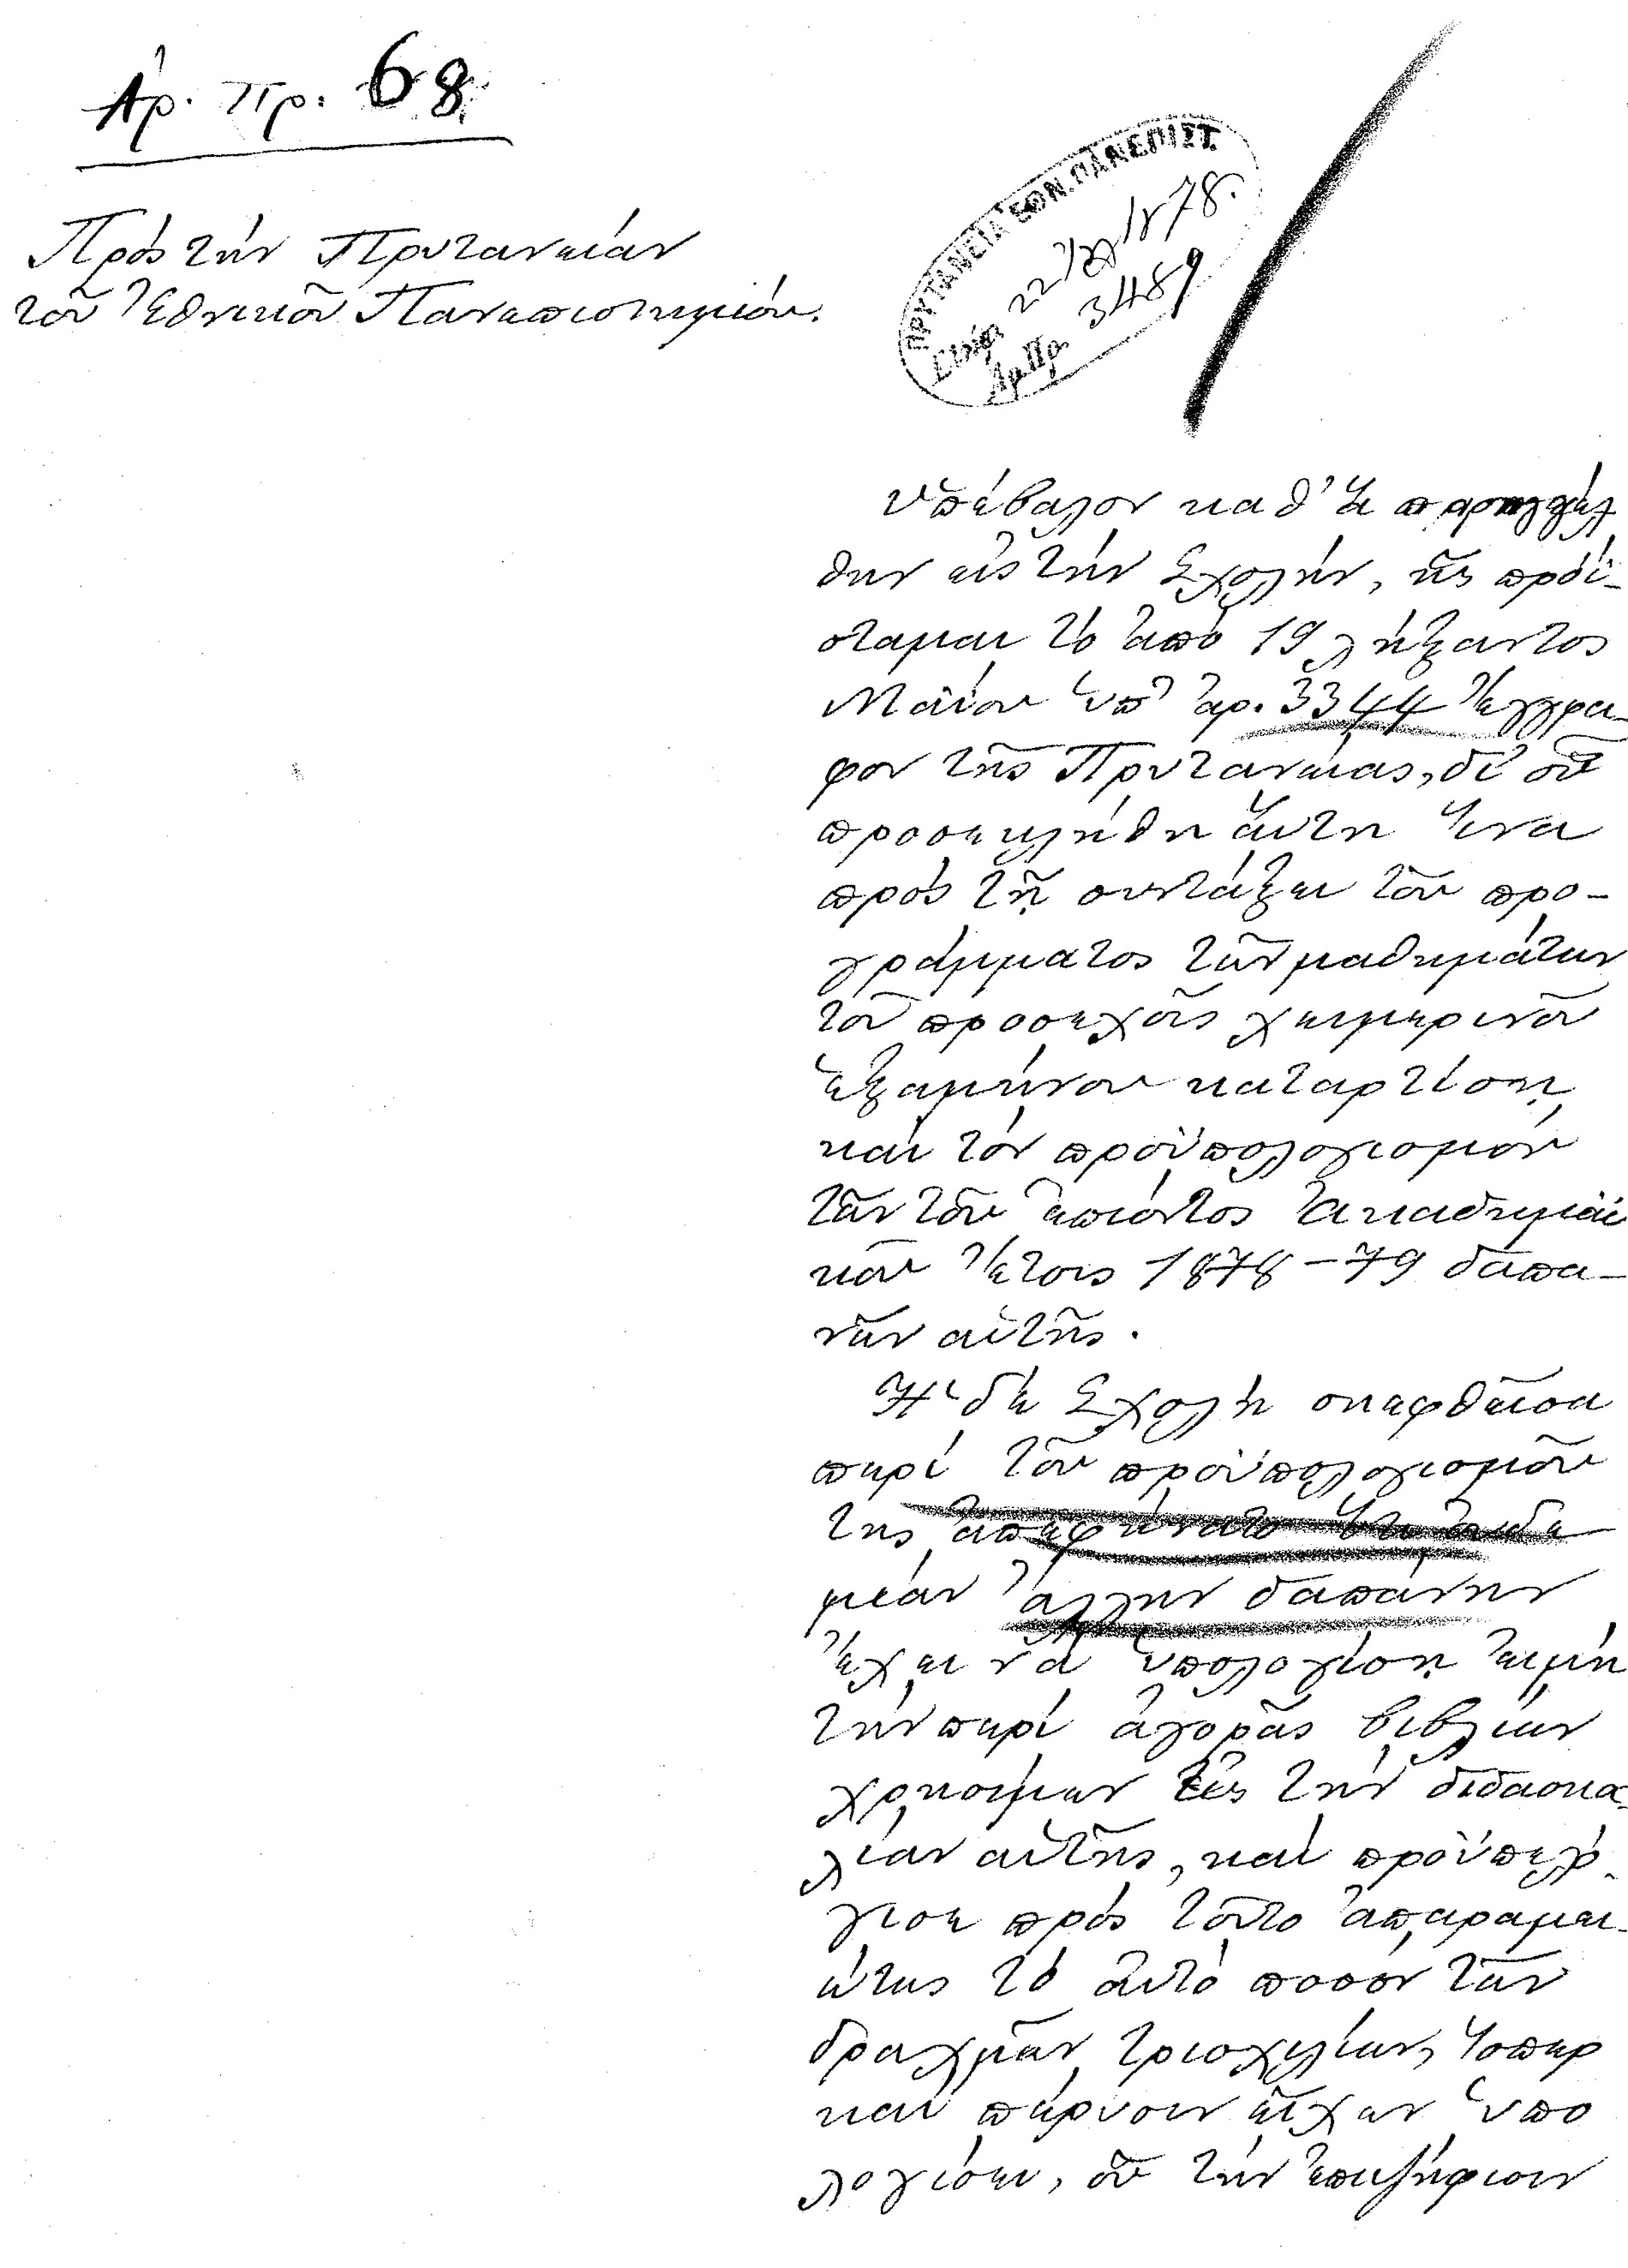 Ἀρ. Πρ. 68.
Πρὸς τὴν Πρυτανείαν
τοῦ Ἐθνικοῦ Πανεπιστημίου.
ΠΡΥΤΑΝΕΙΑ ΕΘΝ. ΠΑΝΕΠΙΣΤ.
22 1878.
Ἀρ. Πρ. 3489
Ὑπέβαλον καθ' ἃ παρηγγέλ
θην εἰς τὴν Σχολήν, ἧς προΐ-
σταμαι τὸ ἀπὸ 19 λήξαντος
Μαΐου ὑπ' ἀρ. 3344 ἔγγρα-
φον τῆς Πρυτανείας, δι' οὗ
προσεκλήθη αὕτη ἵνα
πρὸς τῇ συντάξει τοῦ προ-
γράμματος τῶν μαθημάτων
τοῦ προσεχοῦς χειμερινοῦ
ἑξαμήνου καταρτίσῃ
καὶ τὸν προϋπολογισμὸν
τῶν τοῦ ἐπιόντος Ἀκαδημαϊ
κοῦ ἔτους 1878-79 δαπα-
νῶν αὐτῆς.
Ἡ δὲ Σχολὴ σκεφθεῖσα
περὶ τοῦ προϋπολογισμοῦ
της ἀπεφήνατο ὅτι οὐδε
μίαν ἄλλην δαπάνην
ἔχει νὰ ὑπολογίσῃ εἰμὴ
τὴν περὶ ἀγορᾶς βιβλίων
χρησίμων εἰς τὴν διδασκα-
λίαν αὐτῆς, καὶ προϋπελό-
γισε πρὸς τοῦτο ἀπαραμει-
ώτως τὸ αὐτὸ ποσὸν τῶν
δραχμῶν τρισχιλίων, ὅπερ
καὶ πέρυσιν εἶχεν ὑπο
λογίσει, οὗ τὴν ἐπιψήφισιν